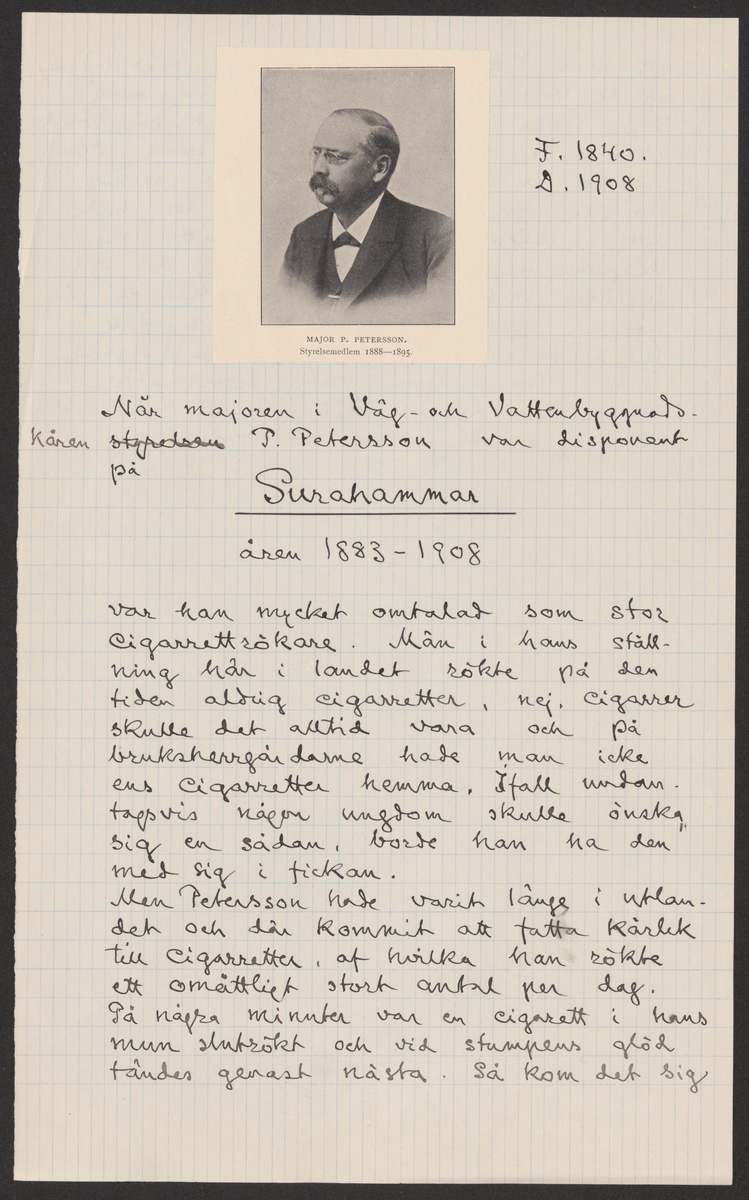 F. 1840.
D. 1908
MAJOR P. PETERSSON.
Styrelsemedlem 1888—1895.
När majoren i Väg- och Vattenbyggnads-
kåren styrelsen P. Petersson var disponent
på
Surahammar
åren 1883-1908
var han mycket omtalad som stor
cigarrettrökare. Män i hans ställ-
ning här i landet rökte på den
tiden aldrig cigarretter, nej, cigarrer
skulle det alltid vara och på
bruksherrgårdarne hade man icke
ens cigarretter hemma. Ifall undan-
tagsvis någon ungdom skulle önska
sig en sådan, borde han ha den"
med sig i fickan.
Men Petersson hade varit länge i utlan-
det och där kommit att fatta kärlek
till cigarretter, af hvilka han rökte
ett omåttligt stort antal per dag.
På några minuter var en cigarett i hans
mun slutrökt och vid stumpens glöd
tändes genast nästa. Så kom det sig